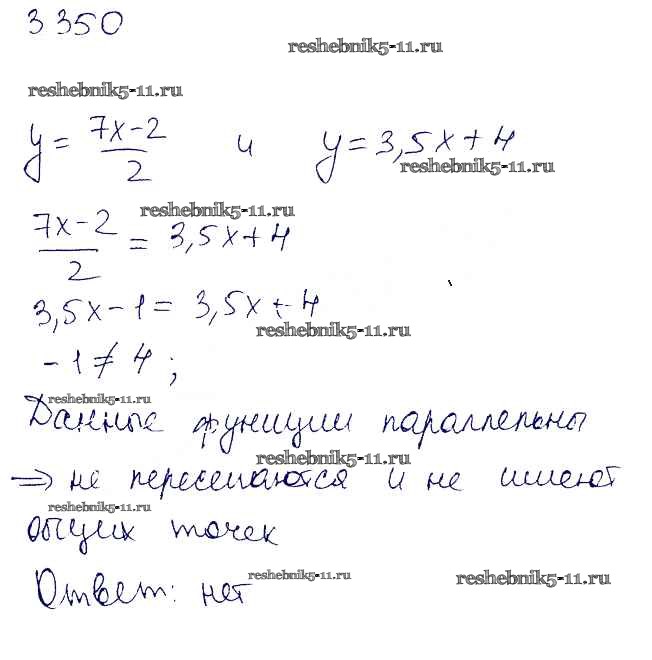 3 350
reshebnik5-11.ru
reshebnik5-11.ru
y = (7x-2)/2 и y = 3,5x + 4
reshebnik5-11.ru
reshebnik5-11.ru
(7x-2)/2 = 3,5x + 4
3,5x - 1 = 3,5x + 4
reshebnik5-11.ru
-1 ≠ 4 ;
reshebnik5-11.ru
Данные функции параллельны
reshebnik5-11.ru
=> не пересекаются и не имеют
reshebnik5-11.ru
общих точек
reshebnik5-11.ru
reshebnik5-11.ru
Ответ: нет